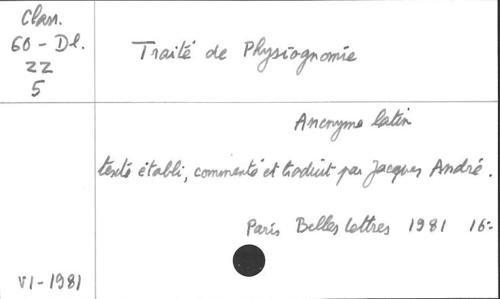 Clan.
60 - Dl.
ZZ
5
Traité de Physiognomie
Anonyme latin
texte établi, commenté et traduit par Jacques André.
Paris Belles lettres 1981 16=
VI-1981